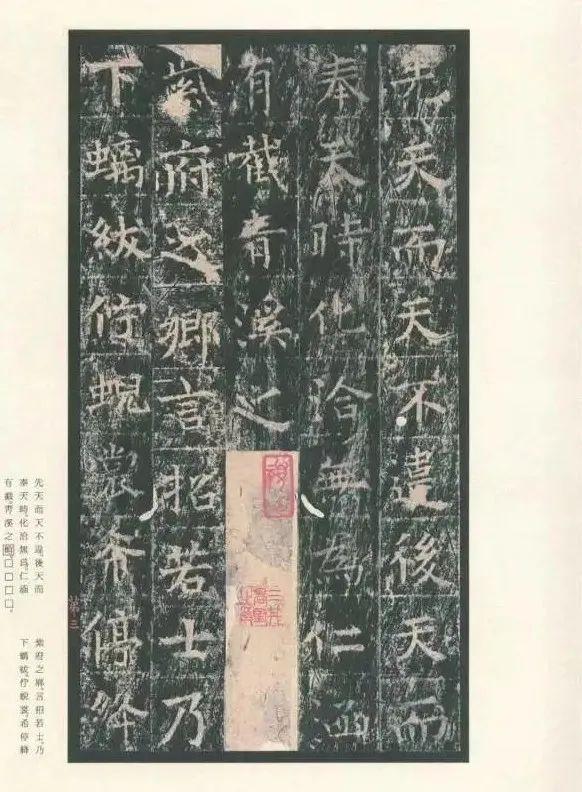 先天而天不違後天而
奉天時化洽無為仁涵
有截青溪之
紫府之鄉言招若士乃
下螭紱佇蜺裳希停絳
第三
先天而天不違。後天而
奉天時。化洽無為。仁涵
有截。青溪之□□□□。
紫府之鄉。言招若士。乃
下螭紱。佇蜺裳。希停絳